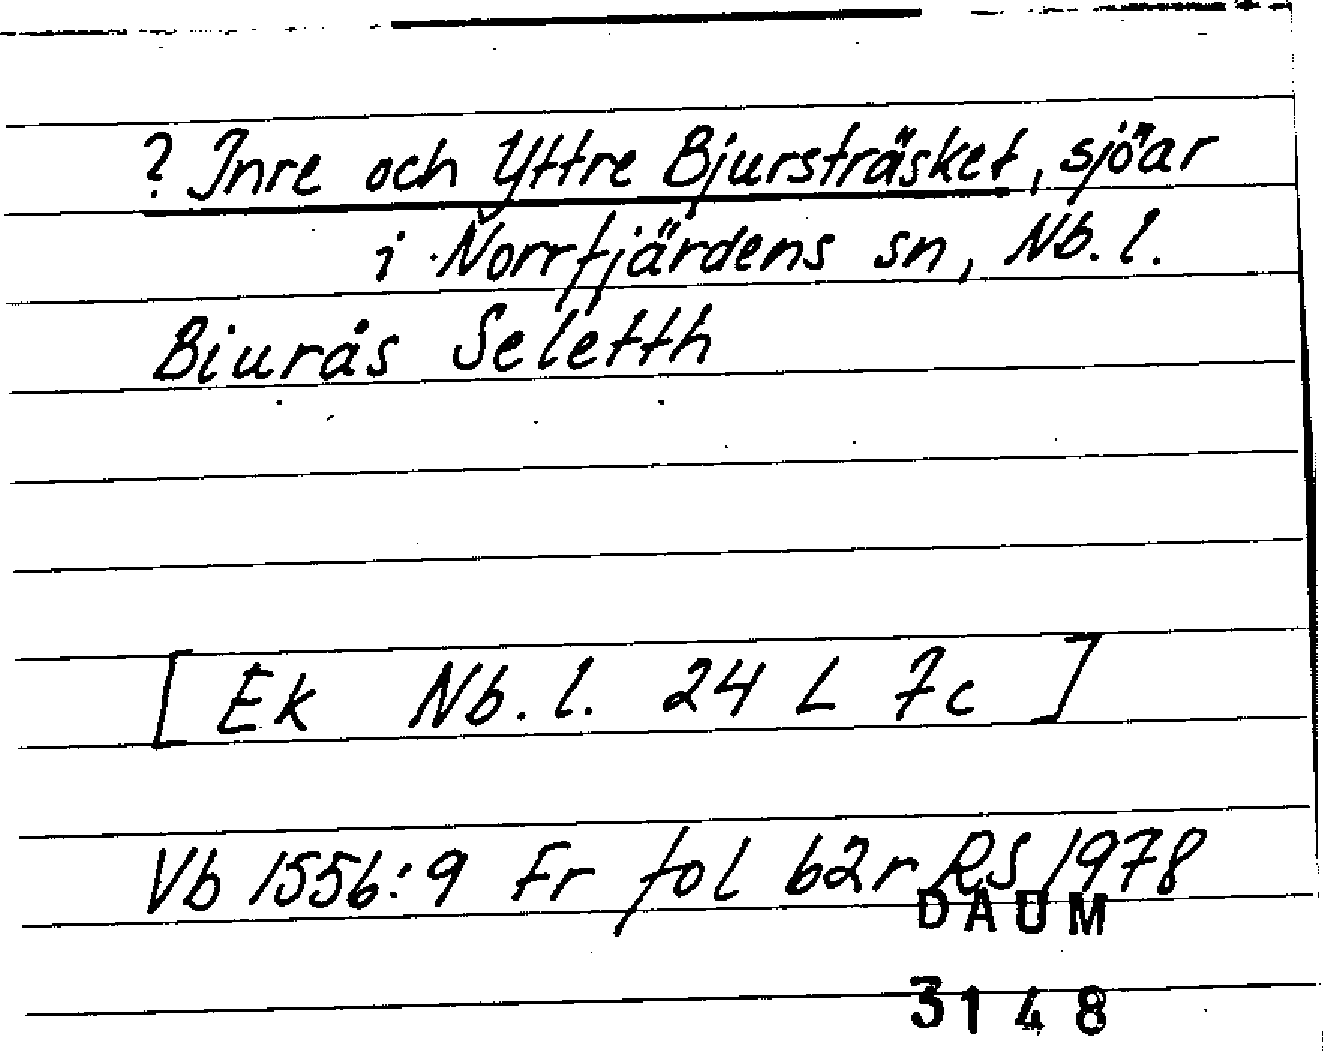 ? Inre och Yttre Bjursträsket, sjöar
i Norrfjärdens sn, Nb. l.
Biurås Seletth
[ Ek Nb. l. 24 L 7c ]
Vb 1556:9 Fr fol 62r RS 1978
DAUM
3148